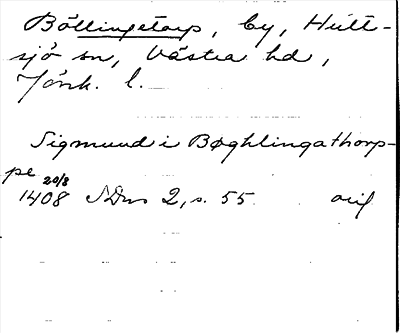 Böllingetorp, by, Hult-
sjö sn, Västra hd,
Jönk. l.
Sigmund i Bøghlingathorp-
pe
20/8
1408 SDns 2, s. 55 orig